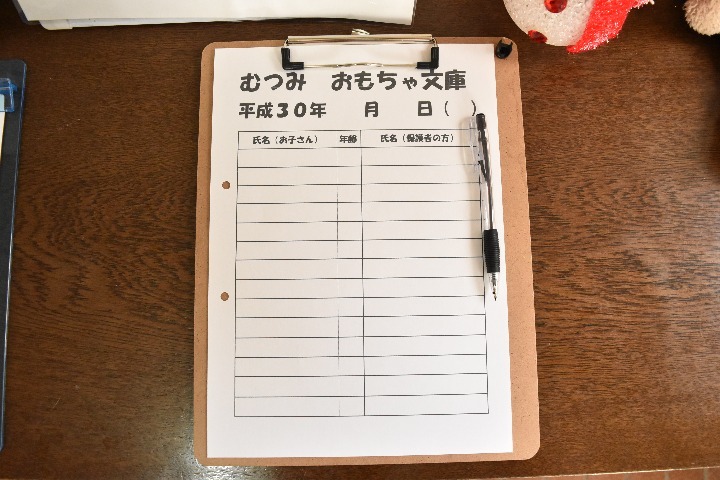 むつみ　おもちゃ文庫
平成３０年　　月　　日（　）
氏名（お子さん）　年齢　氏名（保護者の方）